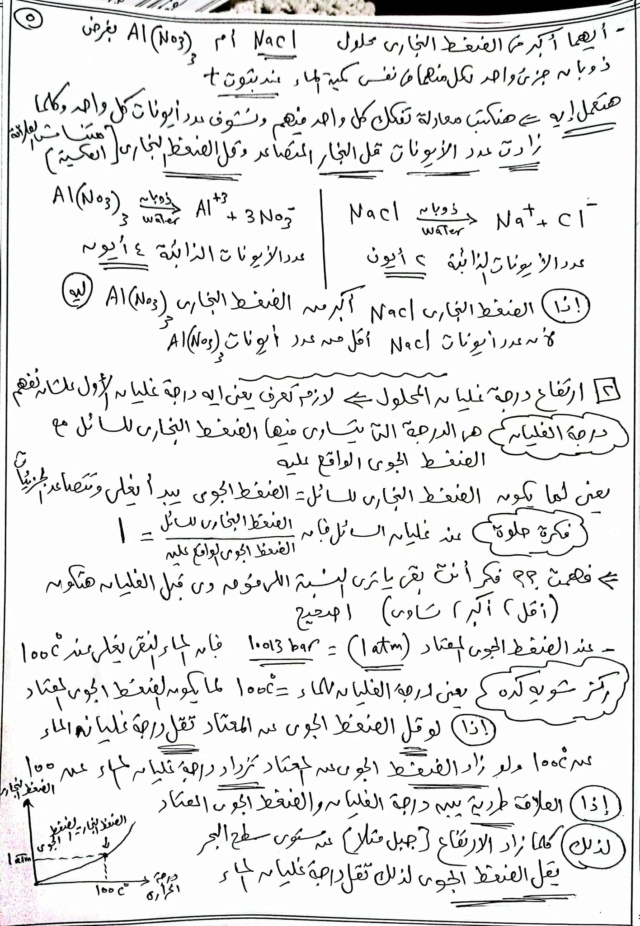 ٥
- أيهما أكبر فى الضغط البخارى محلول NaCl أم Al(No3)3 بفرض
ذوبان جزئ واحد لكل منهما فى نفس كمية الماء عند ثبوت t
هتعمل إيه ⇐ هنكتب معادلة تفكك كل واحد فيهم ونشوف عدد أيونات كل واحد وكلما
زادت عدد الأيونات قل البخار المتصاعد وقل الضغط البخارى [العلاقة العكسية]
NaCl ذوبان water → Na+ + Cl-
عدد الأيونات الذائبة ٢ أيون
Al(No3)3 ذوبان water → Al+3 + 3No3-
عدد الأيونات الذائبة ٤ أيون
إذا الضغط البخارى NaCl أكبر من الضغط البخارى Al(No3)3 ليه
لأن عدد أيونات NaCl أقل من عدد أيونات Al(No3)3
٢ ارتفاع درجة غليان المحلول ⇐ لازم تعرف يعنى إيه درجة غليان الأول علشان تفهم
درجة الغليان هى الدرجة التى يتساوى فيها الضغط البخارى للسائل مع
الضغط الجوى الواقع عليه
يعنى لما يكون الضغط البخارى للسائل = الضغط الجوى يبدأ يغلى وتتصاعد الجزيئات
فكرة حلوة عند غليان السائل فإن الضغط البخارى للسائل / الضغط الجوى الواقع عليه = 1
⇐ فهمت ؟؟ فكر أنت بقى يا ترى النسبة اللى فوق دى قبل الغليان هتكون
(أقل ، أكبر ، تساوى) الصحيح
- عند الضغط الجوى المعتاد (1 atm) = 1.013 bar فإن الماء النقى يغلى عند 100C°
ركز شويه كده يعنى درجة الغليان للماء = 100C° لما يكون الضغط الجوى المعتاد
إذا لو قل الضغط الجوى عن المعتاد تقل درجة غليان الماء
عن 100C° ولو زاد الضغط الجوى عن المعتاد تزداد درجة غليان الماء عن 100
إذا العلاقة طردية بين درجة الغليان والضغط الجوى المعتاد
لذلك كلما زاد الارتفاع [جبل مثلا] عن مستوى سطح البحر
يقل الضغط الجوى لذلك تقل درجة غليان الماء
الضغط البخارى
الضغط البخارى = الضغط الجوى
1 atm
100C°
درجة الحرارة